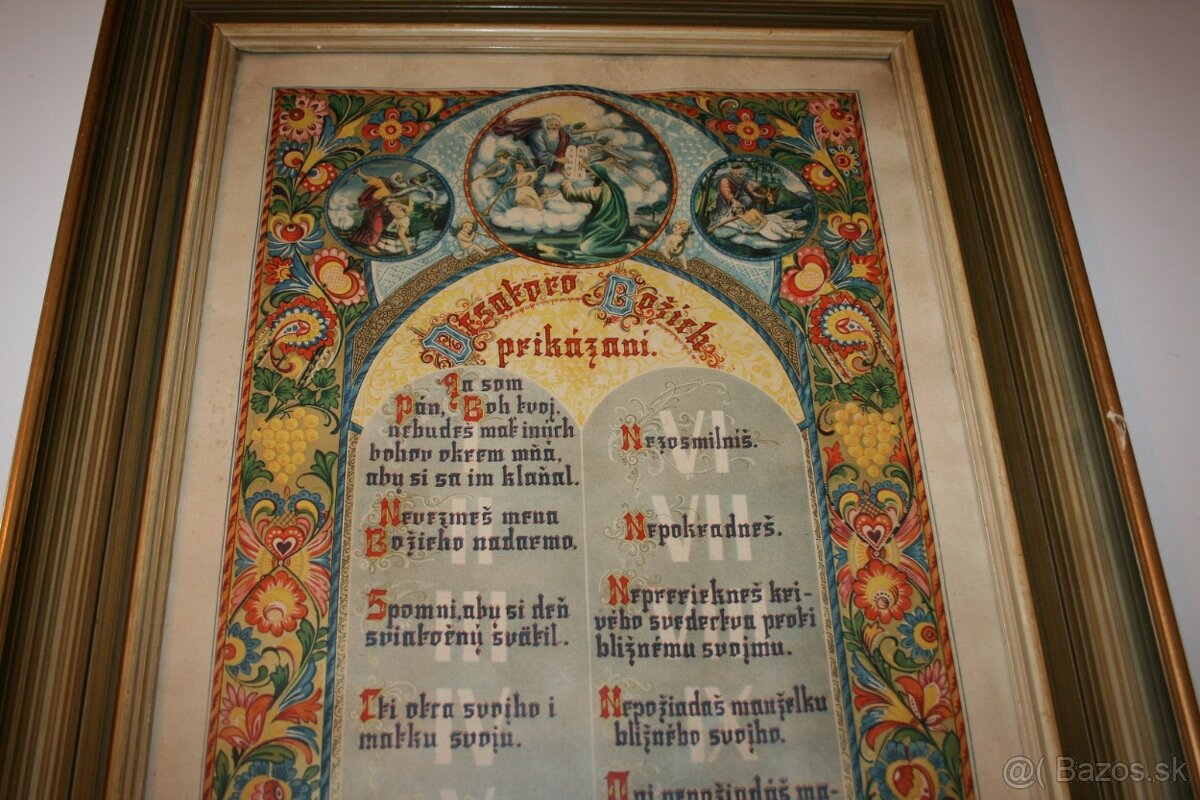 Desatoro Božích
prikázaní.
Ja som
Pán, Boh tvoj,
nebudeš mať iných
bohov okrem mňa,
aby si sa im klaňal.
I
Nevezmeš mena
Božieho nadarmo.
II
Spomni, aby si deň
sviatočný svätil.
III
Cti otca svojho i
matku svoju.
IV
VI
Nezosmilníš.
VII
Nepokradneš.
VIII
Nepreriekneš kri-
vého svedectva proti
bližnému svojmu.
IX
Nepožiadaš manželku
bližného svojho.
Ani nepožiadáš ma-
@( Bazos.sk